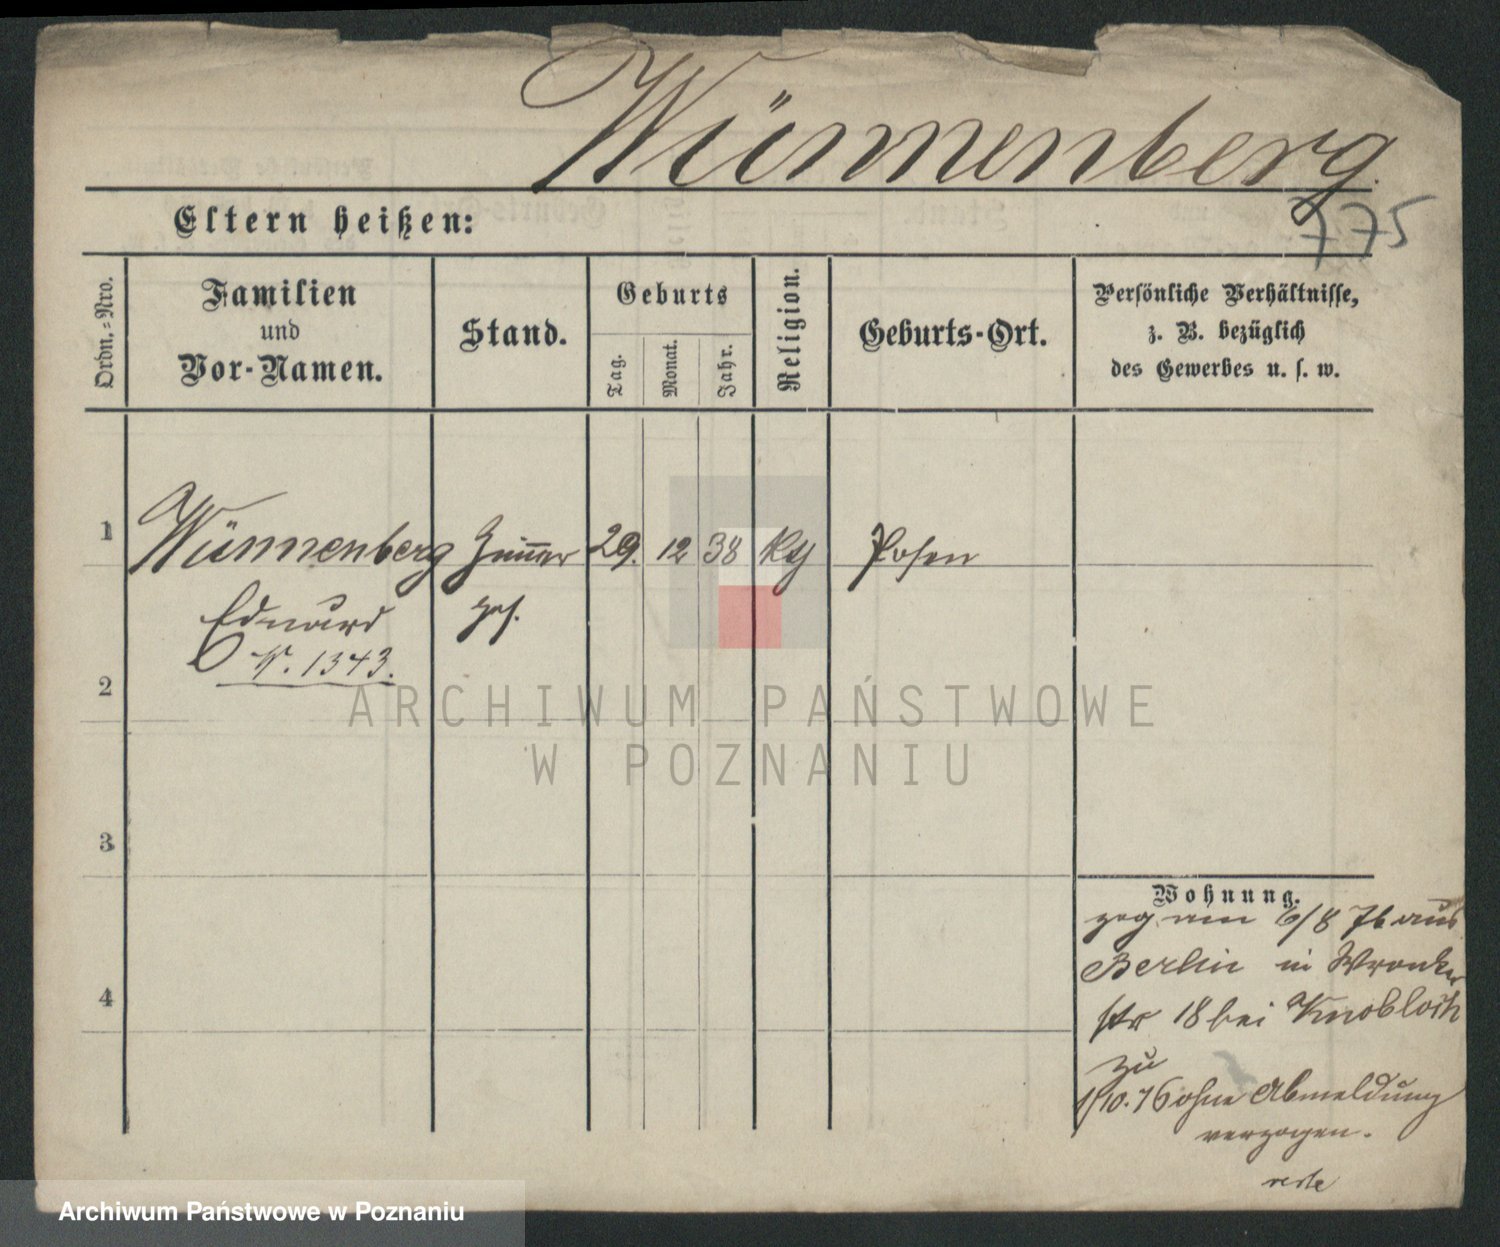 Wünnenberg.
775
Eltern heißen:
Ordn.=Nro.
Familien
und
Vor-Namen.
Stand.
Geburts
Tag.
Monat.
Jahr.
Religion.
Geburts-Ort.
Persönliche Verhältnisse,
z. B. bezüglich
des Gewerbes u. s. w.
1 Wünnenberg Zimmer 29. 12 38 Posen
Eduard ges.
N. 1343.
2
3
4
ARCHIWUM PAŃSTWOWE
W POZNANIU
Wohnung.
zog am 6/8 76 aus
Berlin in Wronker
str 18 bei Knobloch
zu
1/10.76 ohne Abmeldung
verzogen.
Archiwum Państwowe w Poznaniu